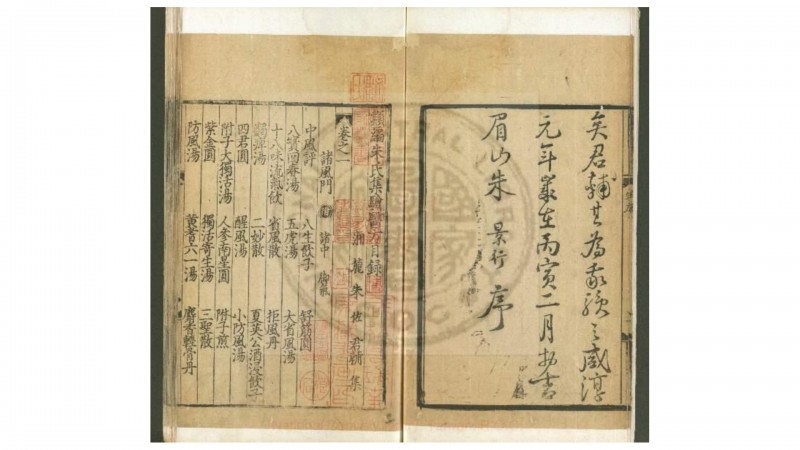 矣君輔其為我預之咸淳
元年歲在丙寅二月
眉山朱 景行 序
類編朱氏集驗醫方目錄
湘麓朱佐君輔集
卷之一
諸風門 諸中
中風評 八生飲子 舒筋圓
八寶回春湯 五虎湯 大省風湯
十八味流氣飲 省風散 拒風丹
二妙散 夏英公酒浸飲子
四君圓 醒風湯 小防風湯
附子大獨活湯 人參南星圓 附子煎
紫金圓 獨活寄生湯 三聖散
防風湯 黃耆六一湯 麝香輕骨丹